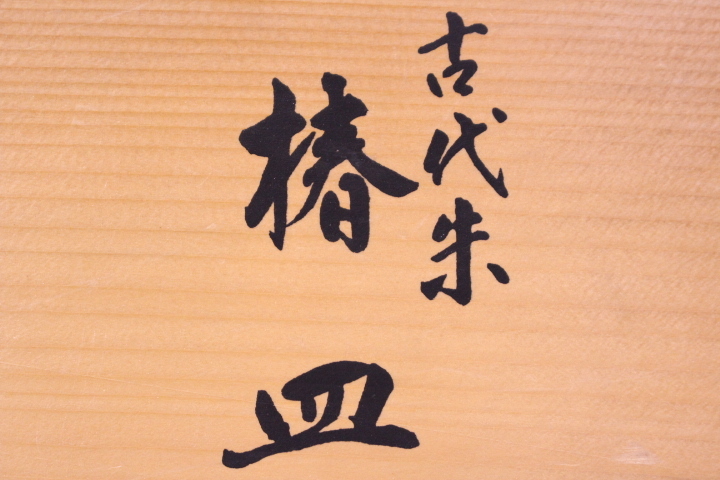 古代朱
椿皿